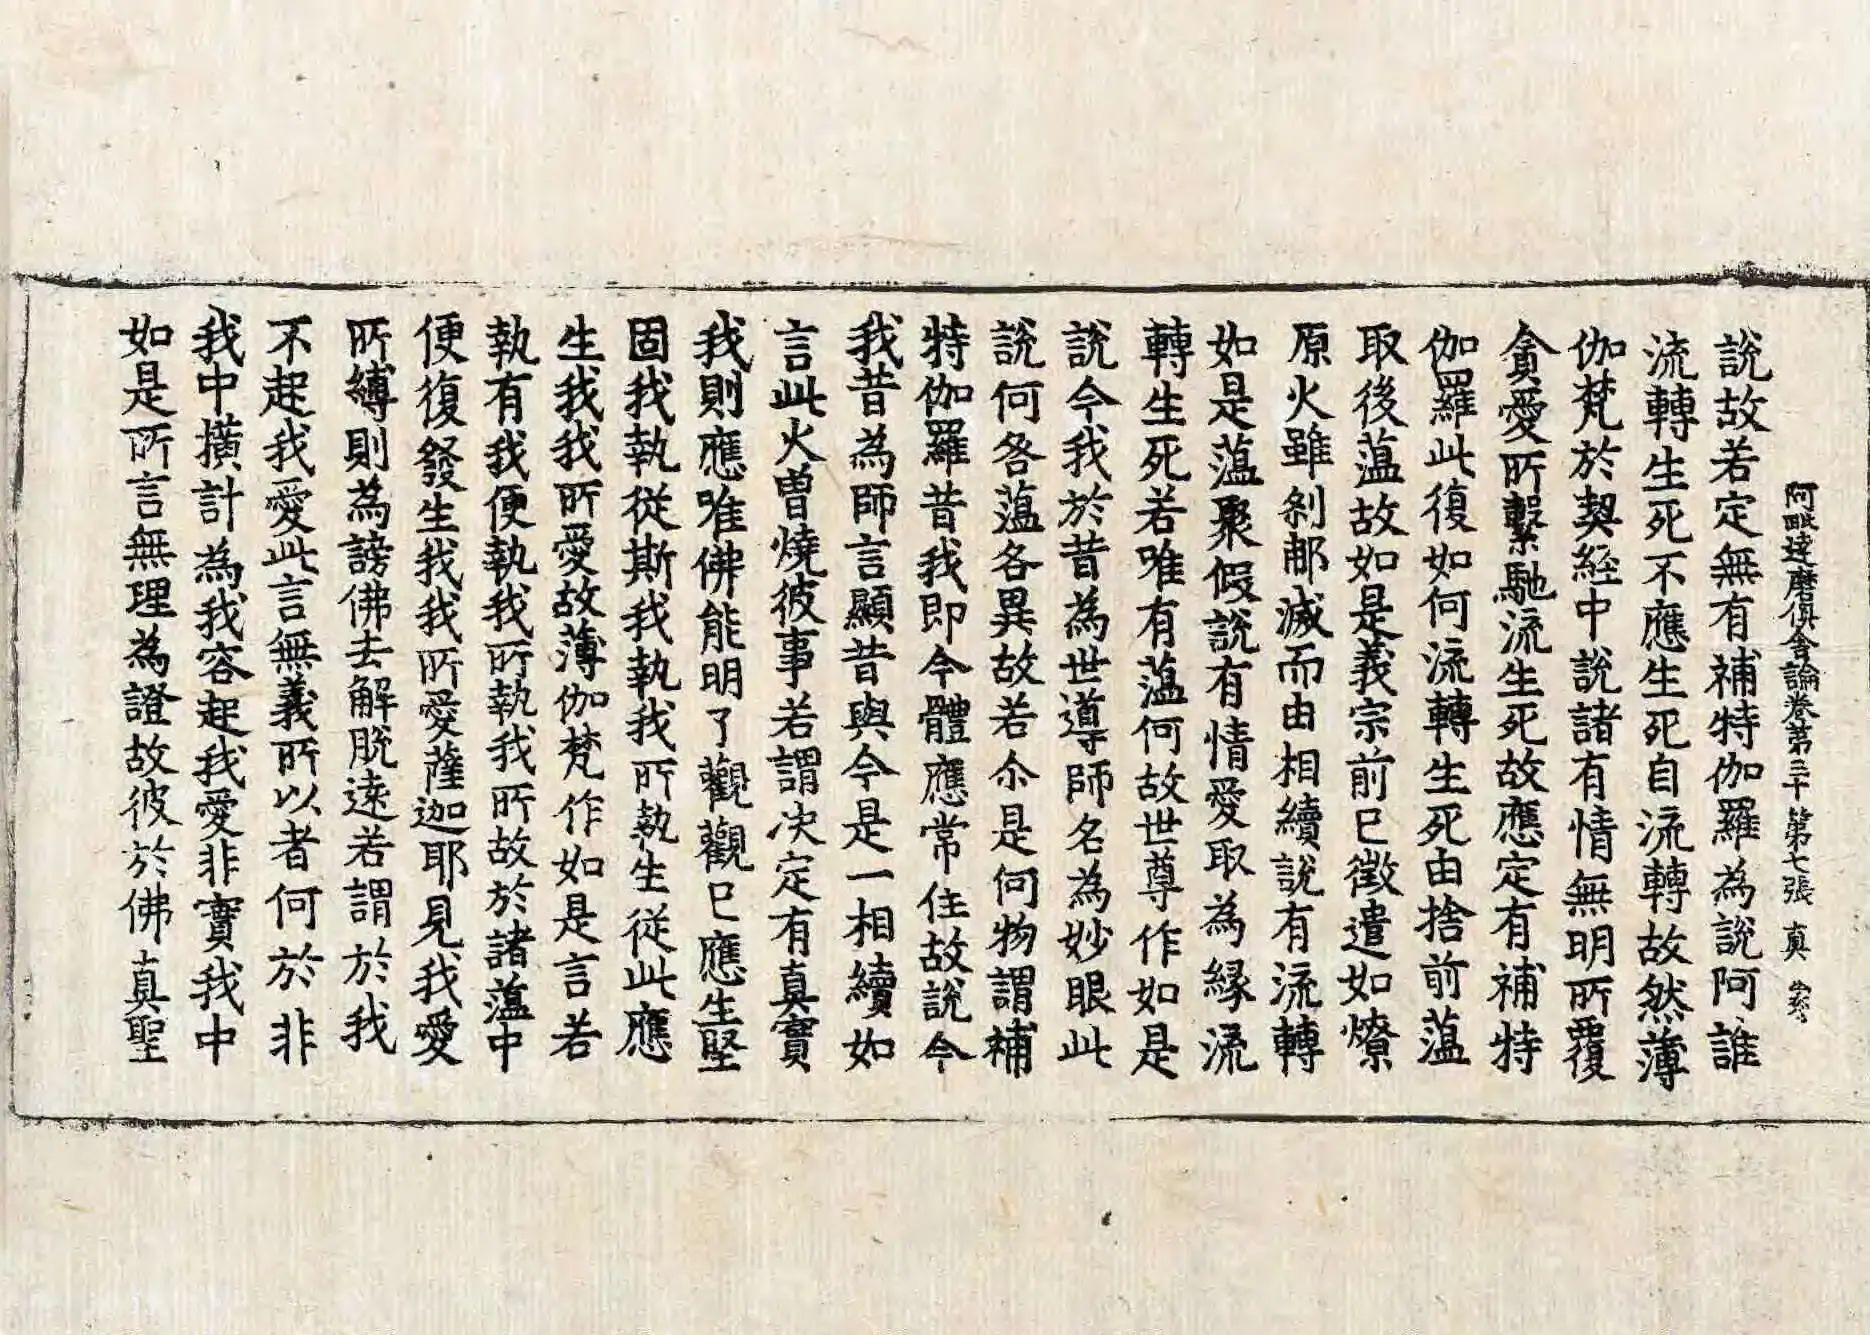 阿毗達磨俱舍論卷第三十 第七張 真
說故若定無有補特伽羅為說阿誰
流轉生死不應生死自流轉故然薄
伽梵於契經中說諸有情無明所覆
貪愛所繫馳流生死故應定有補特
伽羅此復如何流轉生死由捨前蕰
取後蕰故如是義宗前已徵遣如燎
原火雖剎那滅而由相續說有流轉
如是蕰聚假說有情愛取為緣流
轉生死若唯有蕰何故世尊作如是
說今我於昔為世導師名為妙眼此
說何咎蕰各異故若尒是何物謂補
特伽羅昔我即今體應常住故說今
我昔為師言顯昔與今是一相續如
言此火曾燒彼事若謂決定有真實
我則應唯佛能明了觀觀已應生堅
固我執從斯我執我所執生從此應
生我我所愛故薄伽梵作如是言若
執有我便執我所執我所故於諸蕰中
便復發生我我所愛薩迦耶見我愛
所縛則為謗佛去解脫遠若謂於我
不起我愛此言無義所以者何於非
我中橫計為我容起我愛非實我中
如是所言無理為證故彼於佛真聖